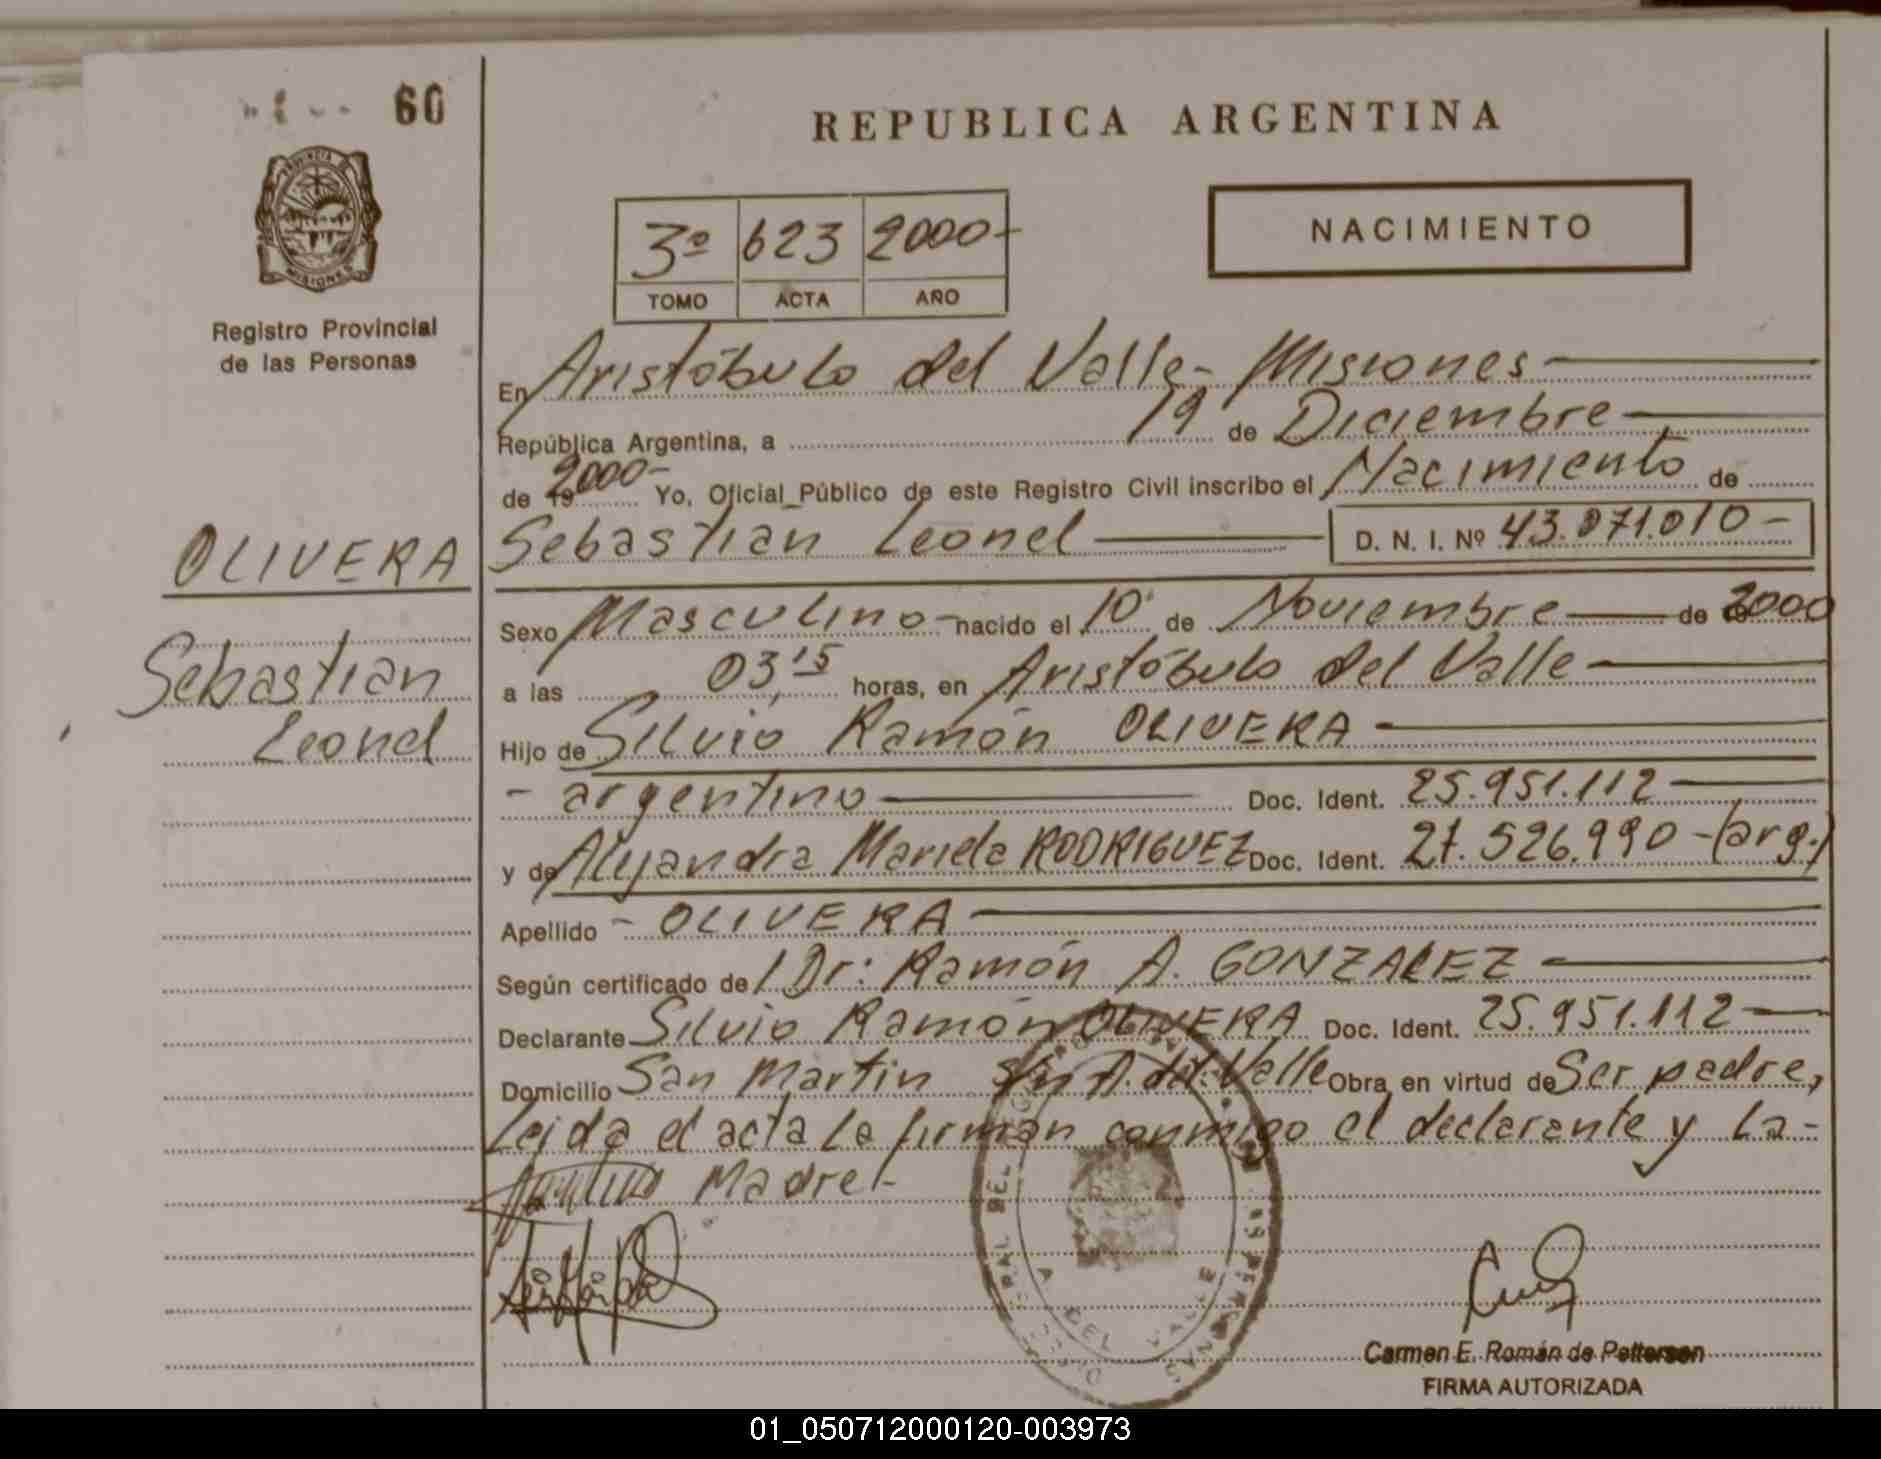 60
REPUBLICA ARGENTINA
PROVINCIA DE
MISIONES
3º 623 2000-
TOMO ACTA AÑO
NACIMIENTO
Registro Provincial
de las Personas
En Aristóbulo del Valle- Misiones
República Argentina, a 19 de Diciembre
de 19 2000- Yo, Oficial Público de este Registro Civil inscribo el Nacimiento de
OLIVERA
Sebastian Leonel D. N. I. Nº 43.071.010-
Sebastian
Leonel
Sexo Masculino- nacido el 10 de Noviembre de 2000
a las 03,15 horas, en Aristóbulo del Valle
Hijo de Silvio Ramón OLIVERA
- argentino Doc. Ident. 25.951.112
y de Alejandra Mariela RODRIGUEZ Doc. Ident. 27.526.990-(arg.)
Apellido - OLIVERA
Según certificado de Dr: Ramón A. GONZALEZ
Declarante Silvio Ramón OLIVERA Doc. Ident. 25.951.112
Domicilio San Martin S/n A. del Valle Obra en virtud de Ser padre,
Leida el acta la firman conmigo el declarante y la-
Madre-
DEL VALLE
Carmen E. Román de Petterson
FIRMA AUTORIZADA
01_050712000120-003973